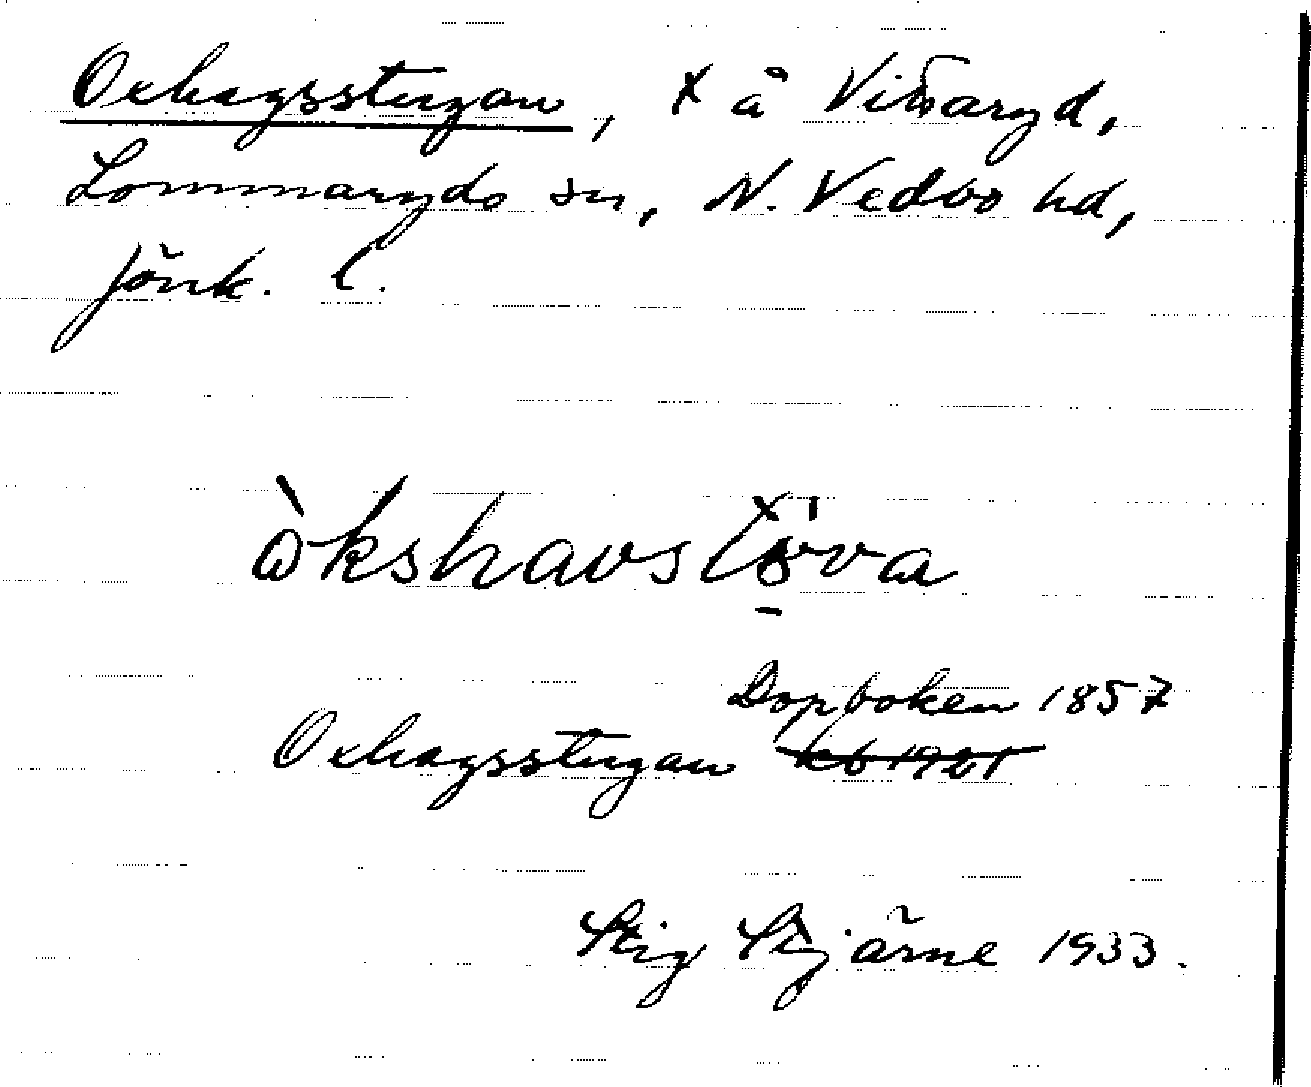 Oxhagsstugan, x å Vibaryd,
Lommaryds sn, N. Vedbo hd,
Jönk. l.
òkshavstöva
Dopboken 1857
Oxhagsstugan
Stig Stjärne 1933.